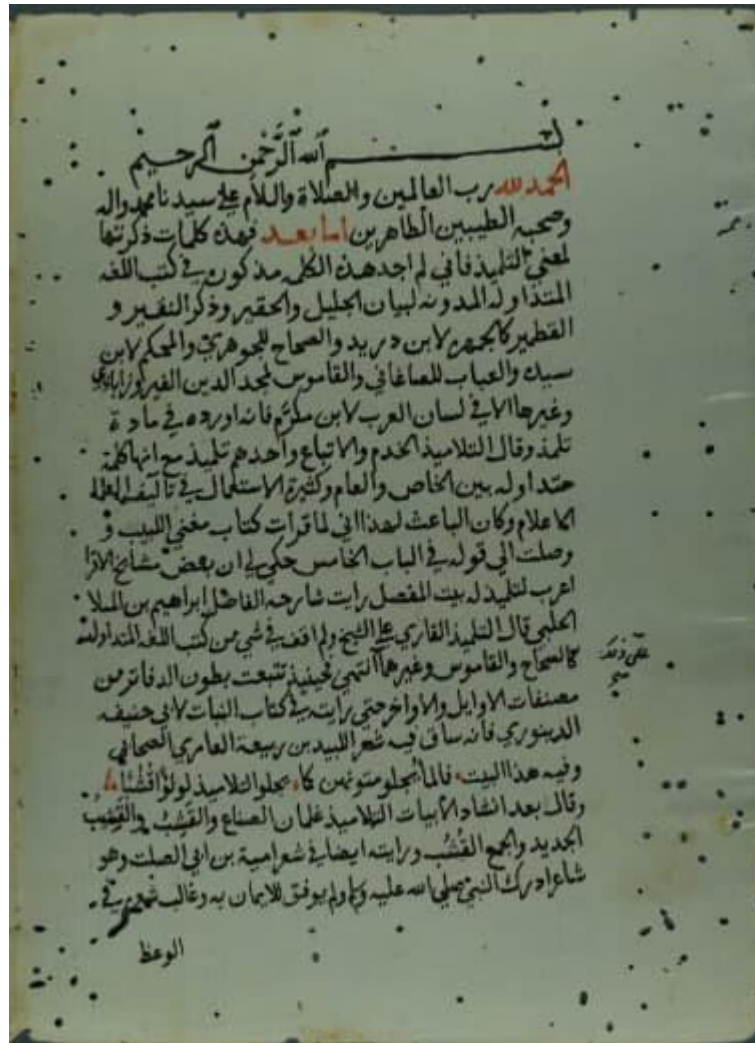 بسم الله الرحمن الرحيم
الحمد لله رب العالمين والصلاة والسلام علي سيدنا محمد واله
وصحبه الطيبين الطاهرين اما بعد فهذه كلمات ذكرتها
لمعني التلميذ فاني لم اجد هذه الكلمه مذكوره في كتب اللغه
المتداوله المدونه لبيان الجليل والحقير وذكر النقير و
القطمير كالجمهره لابن دريد والصحاح للجوهري والمحكم لابن
سيده والعباب للصاغاني والقاموس لمجد الدين الفيروزابادي
وغيرها الا في لسان العرب لابن مكرّم فانه اورده في مادة
تلمذ وقال التلاميذ الخدم والاتباع واحدهم تلميذ مع انها كلمة
متداوله بين الخاص والعام وكثيرة الاستعمال في تآليف العلماء
الاعلام وكان الباعث لهذا اني لما قرات كتاب مغني اللبيب و
وصلت الي قوله في الباب الخامس حكي لي ان بعض مشايخ الاقرا
اعرب لتلميذ له بيت المفصل رايت شارحه الفاضل ابراهيم بن الملا
الحلبي قال التلميذ القاري علي الشيخ ولم اقف في شي من كتب اللغه المتداوله
كالصحاح والقاموس وغيرهما انتهي فحينيذ تتبعت بطون الدفاتر من
مصنفات الاوايل والاواخر حتي رايته في كتاب النبات لابي حنيفه
الدينوري فانه ساق فيه شعر اللبيد بن ربيعة العامري الصحابي
وفيه هذا البيت فالما يجلو متونهن كما يجلو التلاميذ لولوًا قُشُبًا
وقال بعد انشاد الابيات التلاميذ غلمان الصناع والقَشِبُ والقَشِيبُ
الجديد والجمع القُشُب ورايته ايضا في شعر امية بن ابي الصلت وهو
شاعر ادرك النبي صلي الله عليه وسلم ولم يوفق للايمان به وغالب شعره في
الوعظ
علي ذكره
صح